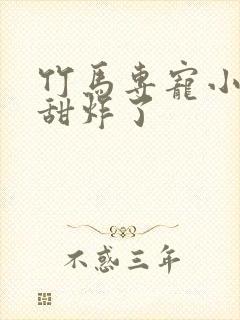 竹馬專寵小
甜炸了
不惑三年